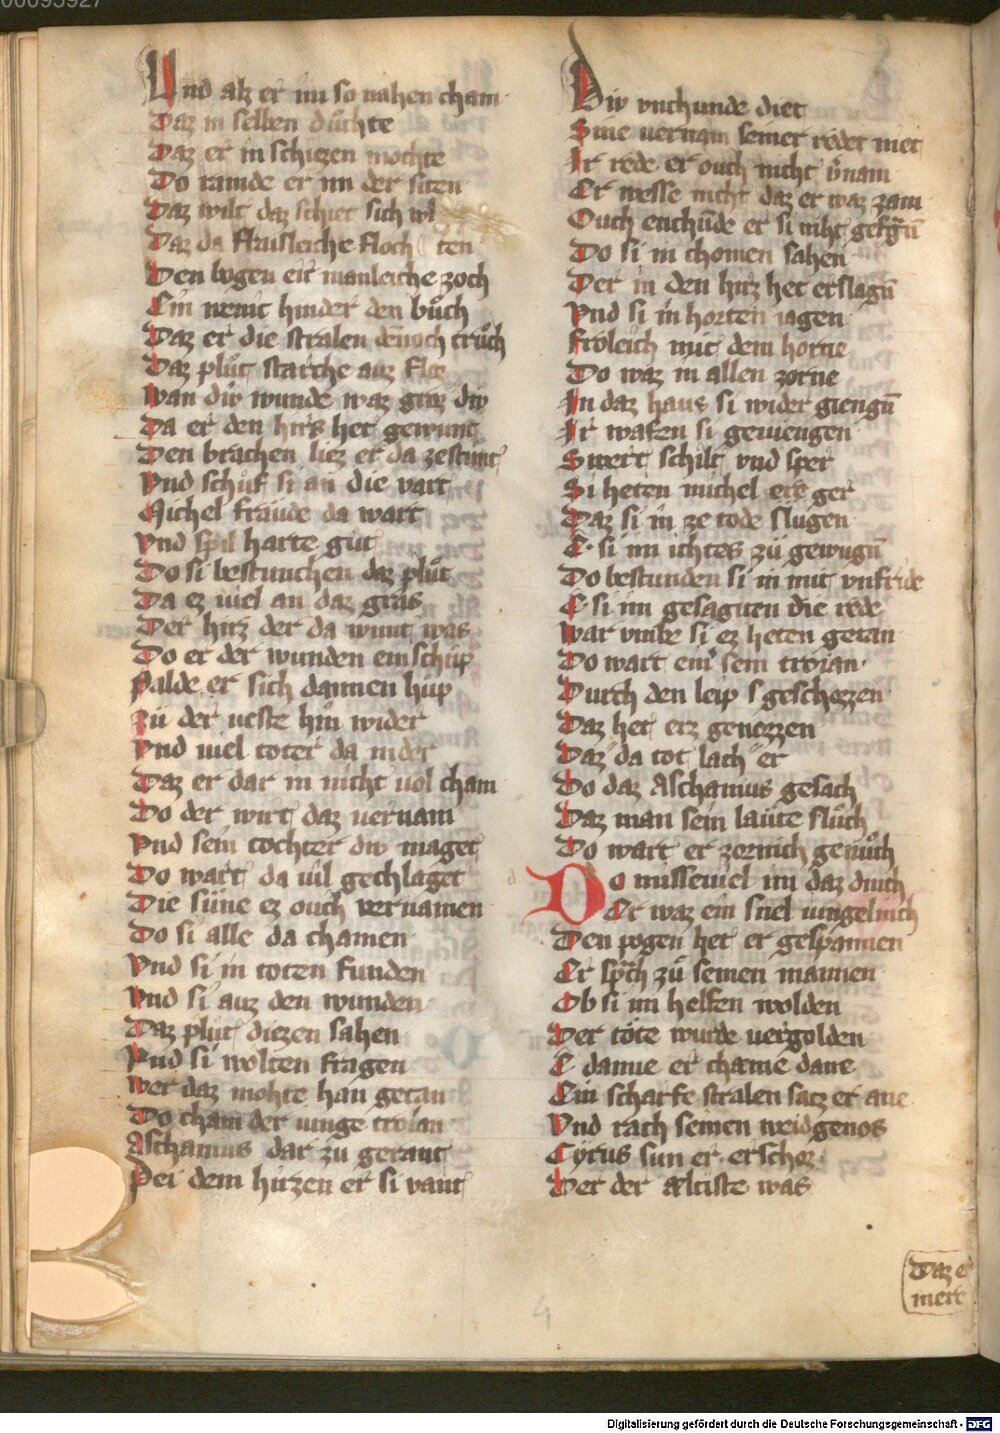 00095927
Und alz er im so nahen cham
Daz in selben důchte
Daz er in schiezen mochte
Do ramde er im der siten
Daz wilt daz schiet sich
Daz da flaisleiche floch ten
Den bogen eit manleiche zoch
Ein nemit hinder den bůch
Daz er die stralen dēnoch trůch
Daz plůt starche auz floz
Wan diw wunde waz groz div
Da er den hirs het gewunt
Den brachen liez er da zestunt
Vnd schůf si an die vart
Michel fräude da wart
Vnd spil harte gůt
Do si bestunchen daz plůt
Da ez viel an daz gras
Der hirz der da wunt was
Do er der wunden enschüp
Palde er sich dannen hüp
zü der veste hin wider
Vnd viel toter da nider
Daz er dar in nicht uol cham
Do der wirt daz vernam
Vnd sein tochter diw maget
Do wart da uil gechlaget
Die süne ez ouch vernamen
Do si alle da chamen
Vnd si in toten funden
Vnd si auz den wunden
Daz plůt diezen sahen
Vnd si wolten fragen
Wer daz mohte han getan
Do cham der iunge troian
Aschanius dar zu gerant
Pei dem hirzen er si vant
Diw vnchunde diet
Sine vernam seiner redet niet
Ir rede er ouch nicht v̄nam
Er wesse nicht daz er waz zam
Ouch enchūde er si niht gefrāgū
Do si in chomen sahen
Der in den hirz het erslagn̄
Vnd si in horten iagen
Fröleich mit dem horne
Do waz in allen zorne
In daz haus si wider giengn̄
Ir wafen si geuiengen
Swert schilt vnd sper
Si heten michel ere ger
Daz si in ze tode slügen
E si im ichtes zü gewugn̄
Do bestunden si in mit vnfride
E si im gesagnten die rede
War vmbe si ez heten getan
Do wart eim sein troian
Durch den leip geschozzen
Daz het erz genozzen
Daz da tot lach er
Do daz Aschanius gesach
Daz man sein laüte slůch
Do wart er zornich genůch
Do misseuiel im daz dinch
Er waz ein snel iungelinch
Den pogen het er gespannen
Er sprach zů seinen mannen
Ob si im helfen wolden
Der töte wurde uergolden
E danne er chæme dane
Ein scharfe stralen satz er ane
Vnd rach seinen weidgenos
Cyrus sun er erschoz
Der der æltiste was
Daz e
mere
4
Digitalisierung gefördert durch die Deutsche Forschungsgemeinschaft - DFG